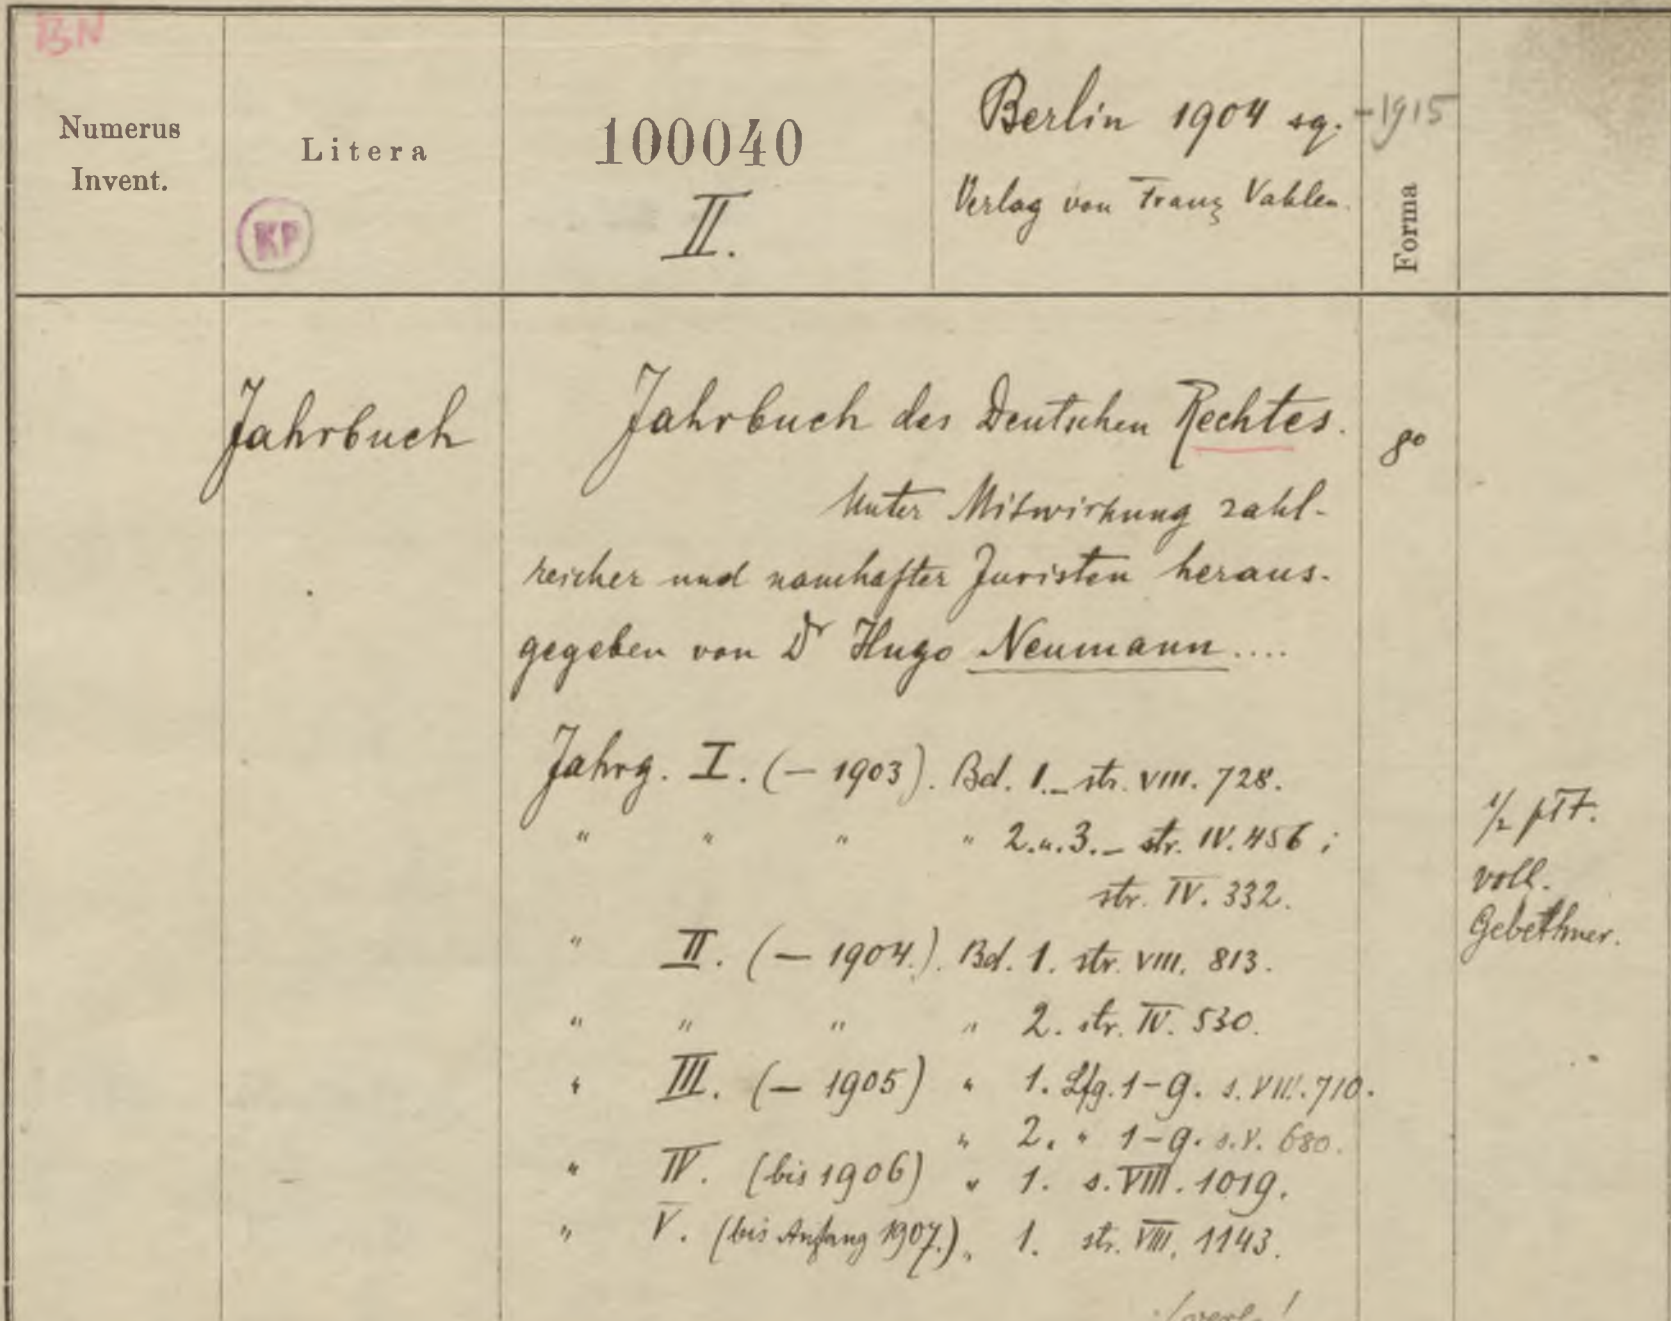 BN
Numerus
Invent.
Litera
KP
100040
II.
Berlin 1904 sq. -1915
Verlag von Franz Vahlen.
Forma
Jahrbuch
Jahrbuch des Deutschen Rechtes.
8º
Unter Mitwirkung zahl-
reicher und namhafter Juristen heraus-
gegeben von Dr Hugo Neumann....
Jahrg. I. (— 1903). Bd. 1.— str. VIII. 728.
" " " " 2.u.3.— str. IV. 456 i
str. IV. 332.
" II. (— 1904.). Bd. 1. str. VIII. 813.
" " " " 2. str. IV. 530.
" III. (— 1905) " 1. Lfg. 1-9. s. VIII. 710.
" 2. " 1-9. s. V. 680.
" IV. (bis 1906) " 1. s. VIII. 1019.
" V. (bis Anfang 1907.) " 1. str. VIII. 1143.
1/2 płt.
voll.
Gebethner.